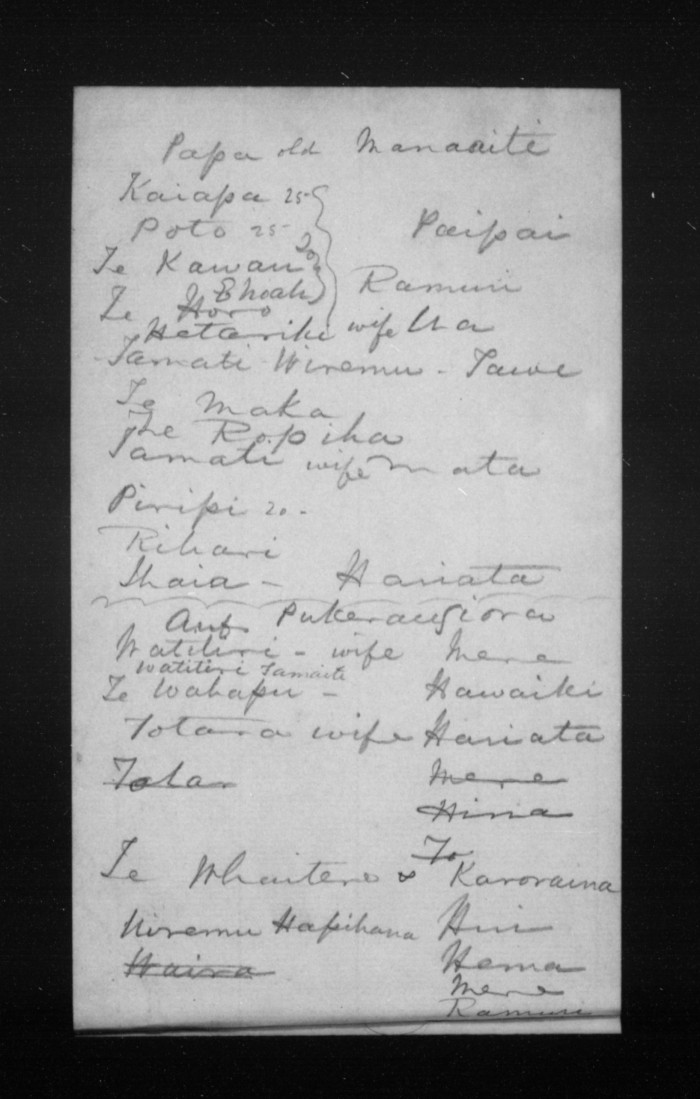 Papa old Manaaiti
Kaiapa 25
Poto 25 Paipai
Te Kawau 20
Te Horo Ehoah Ramuri
Hetariki wife Ua
Tamati Wiremu - Tawe
Te Maka
Te Ropiha
Tamati wife Mata
Piripi 20 -
Rihari
Ihaia - Hariata
Pukerangiora
Watitiri - wife Mere
Watitiri Tamaiti
Te Wahapu - Hawaiki
Totara wife Hariata
Tota Mere
Hina
To
Te Whaitere & Karoraina
Wiremu Hapihana Hiri
Waira Hema
Mere
Ramuri